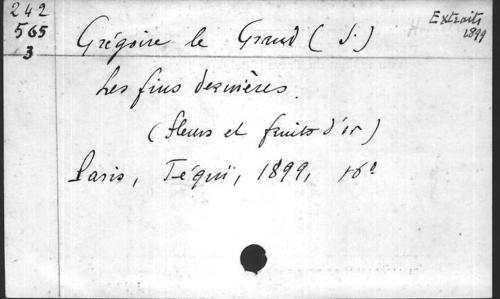 242
565
3
Grégoire le Grand (S.)
Extraits
1899
Les fins dernières.
(fleurs et fruits d'or)
Paris, Téqui, 1899, 16°